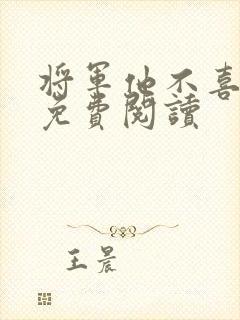 將軍他不喜
免費閱讀
王晨